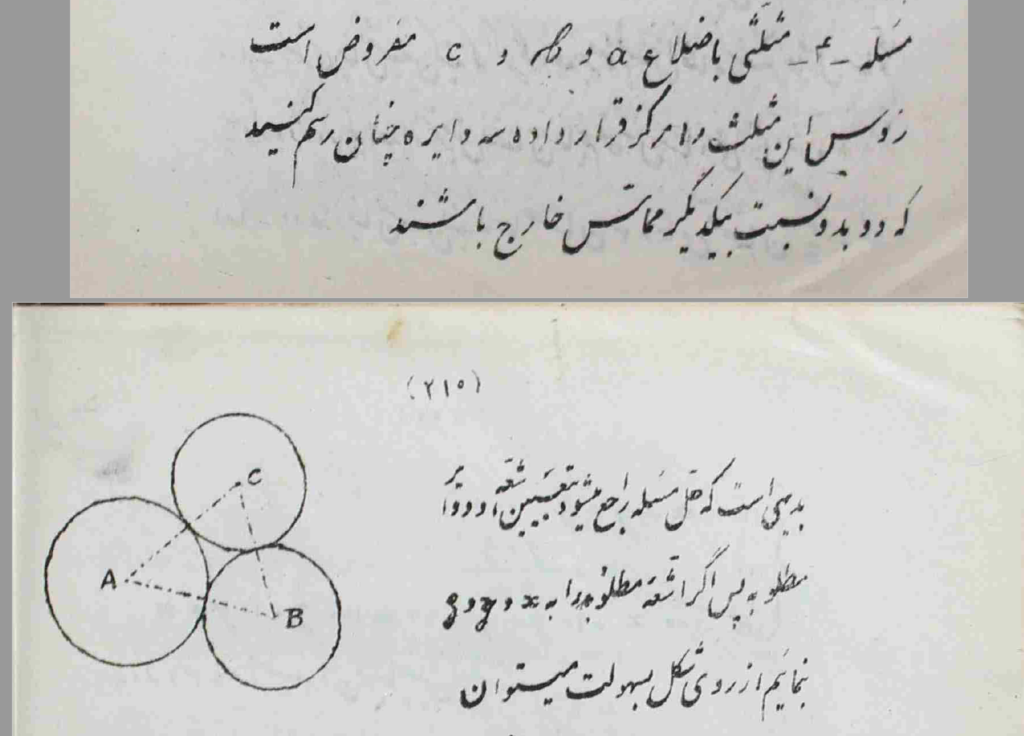 مسئله -۴- مثلثی باضلاع a و b و c مفروض است
رؤوس این مثلث را مرکز قرار داده سه دایره چنان رسم کنید
که دو بدو نسبت بیکدیگر مماس خارج باشند
(۲۱۵)
بدیهی است که حل مسئله راجع میشود بتعیین اشعه دوایر
مطلوبه پس اگر اشعه مطلوبه را به x و y و z
بنمائیم از روی شکل بسهولت میتوان
C
A
B